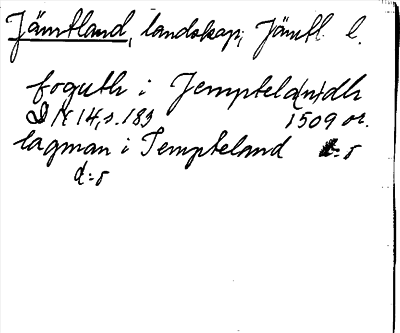 Jämtland, landskap, Jämtl l.
foguth i Jemptela(n)dh
DN 14, s. 183 1509 or.
lagman i Jempteland d:o
d:o